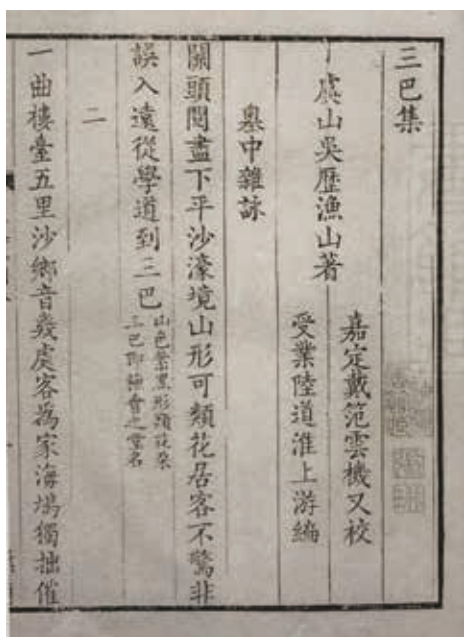 三巴集
虞山吳歷漁山著
嘉定戴范雲機又校
受業陸道淮上游編
嶴中雜詠
關頭閱盡下平沙濠境山形可類花居客不驚非
誤入遠從學道到三巴
山色紫黑形類花朵
三巴耶穌會之堂名
二
一曲樓臺五里沙鄉音幾處客為家海鳩獨拙催